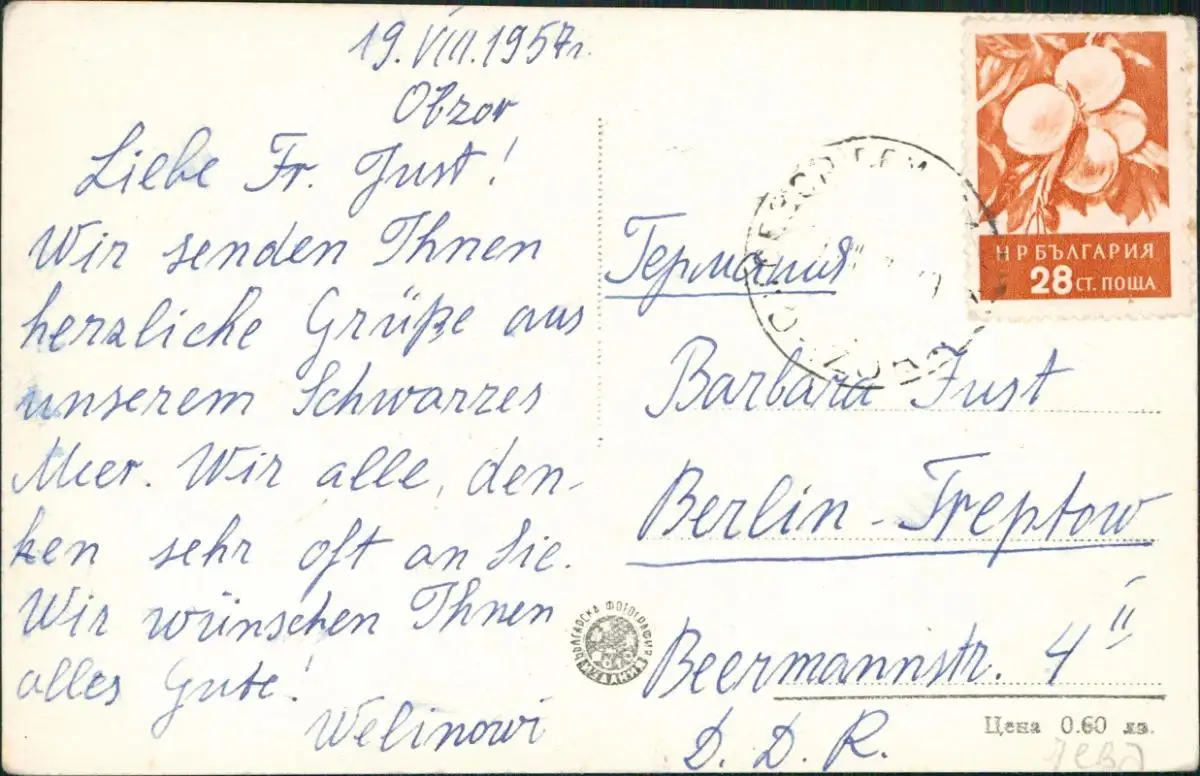 19. VIII. 1957г.
Obzor
Liebe Fr. Just!
Wir senden Ihnen
herzliche Grüße aus
unserem Schwarzes
Meer. Wir alle, den-
ken sehr oft an Sie.
Wir wünschen Ihnen
alles Gute!
Welinowi
НР БЪЛГАРИЯ
28 СТ. ПОЩА
Германия
Barbara Just
Berlin-Treptow
Beermannstr. 4 II
D. D. R.
БЪЛГАРСКА ФОТОГРАФИЯ
Цена 0.60 лв.
лева